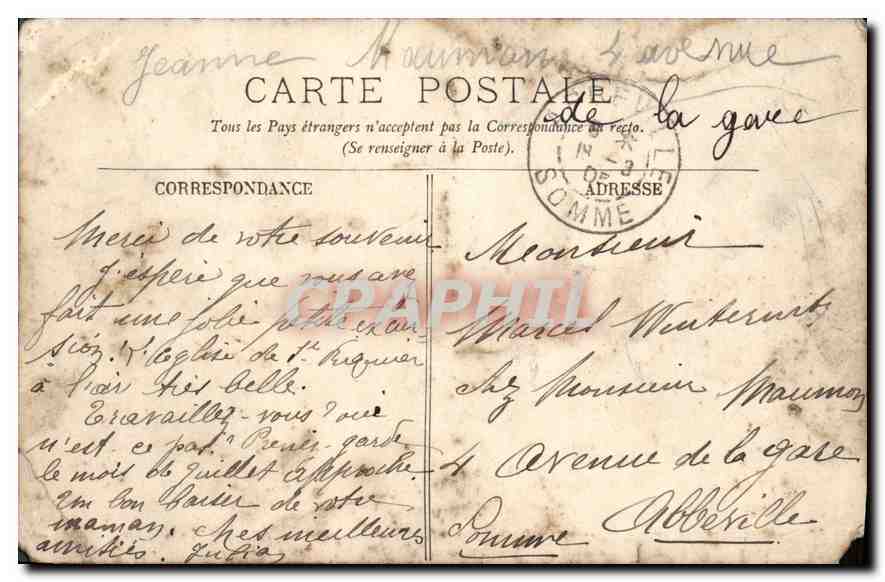 Jeanne Maumon 4 avenue
de la gare
CARTE POSTALE
Tous les Pays étrangers n'acceptent pas la Correspondance au recto.
(Se renseigner à la Poste).
SOMME
CORRESPONDANCE
Merci de votre souvenir
J'espère que vous ave
fait une jolie petite excur-
sion. L'Eglise de St Riquier
à l'air très belle.
Travaillez-vous? oui
n'est ce pas? Prenez garde
le mois de Juillet approche.
Un bon baiser de votre
maman. Mes meilleures
amitiés.
ADRESSE
Monsieur
Marcel Winternitz
chez Monsieur Maumon
4 avenue de la gare
Abbeville
Somme
CPAPHIL